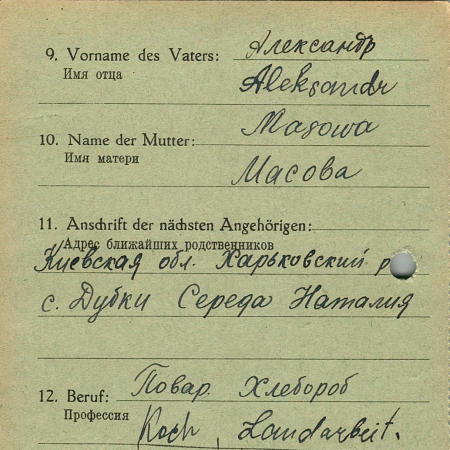 9. Vorname des Vaters: Александр
Имя отца Aleksandr
10. Name der Mutter: Masowa
Имя матери Масова
11. Anschrift der nächsten Angehörigen:
Адрес ближайших родственников
Киевская обл. Харьковский р
с. Дубки Середа Наталия
12. Beruf: Повар. Хлебороб
Профессия Koch, Landarbeit.